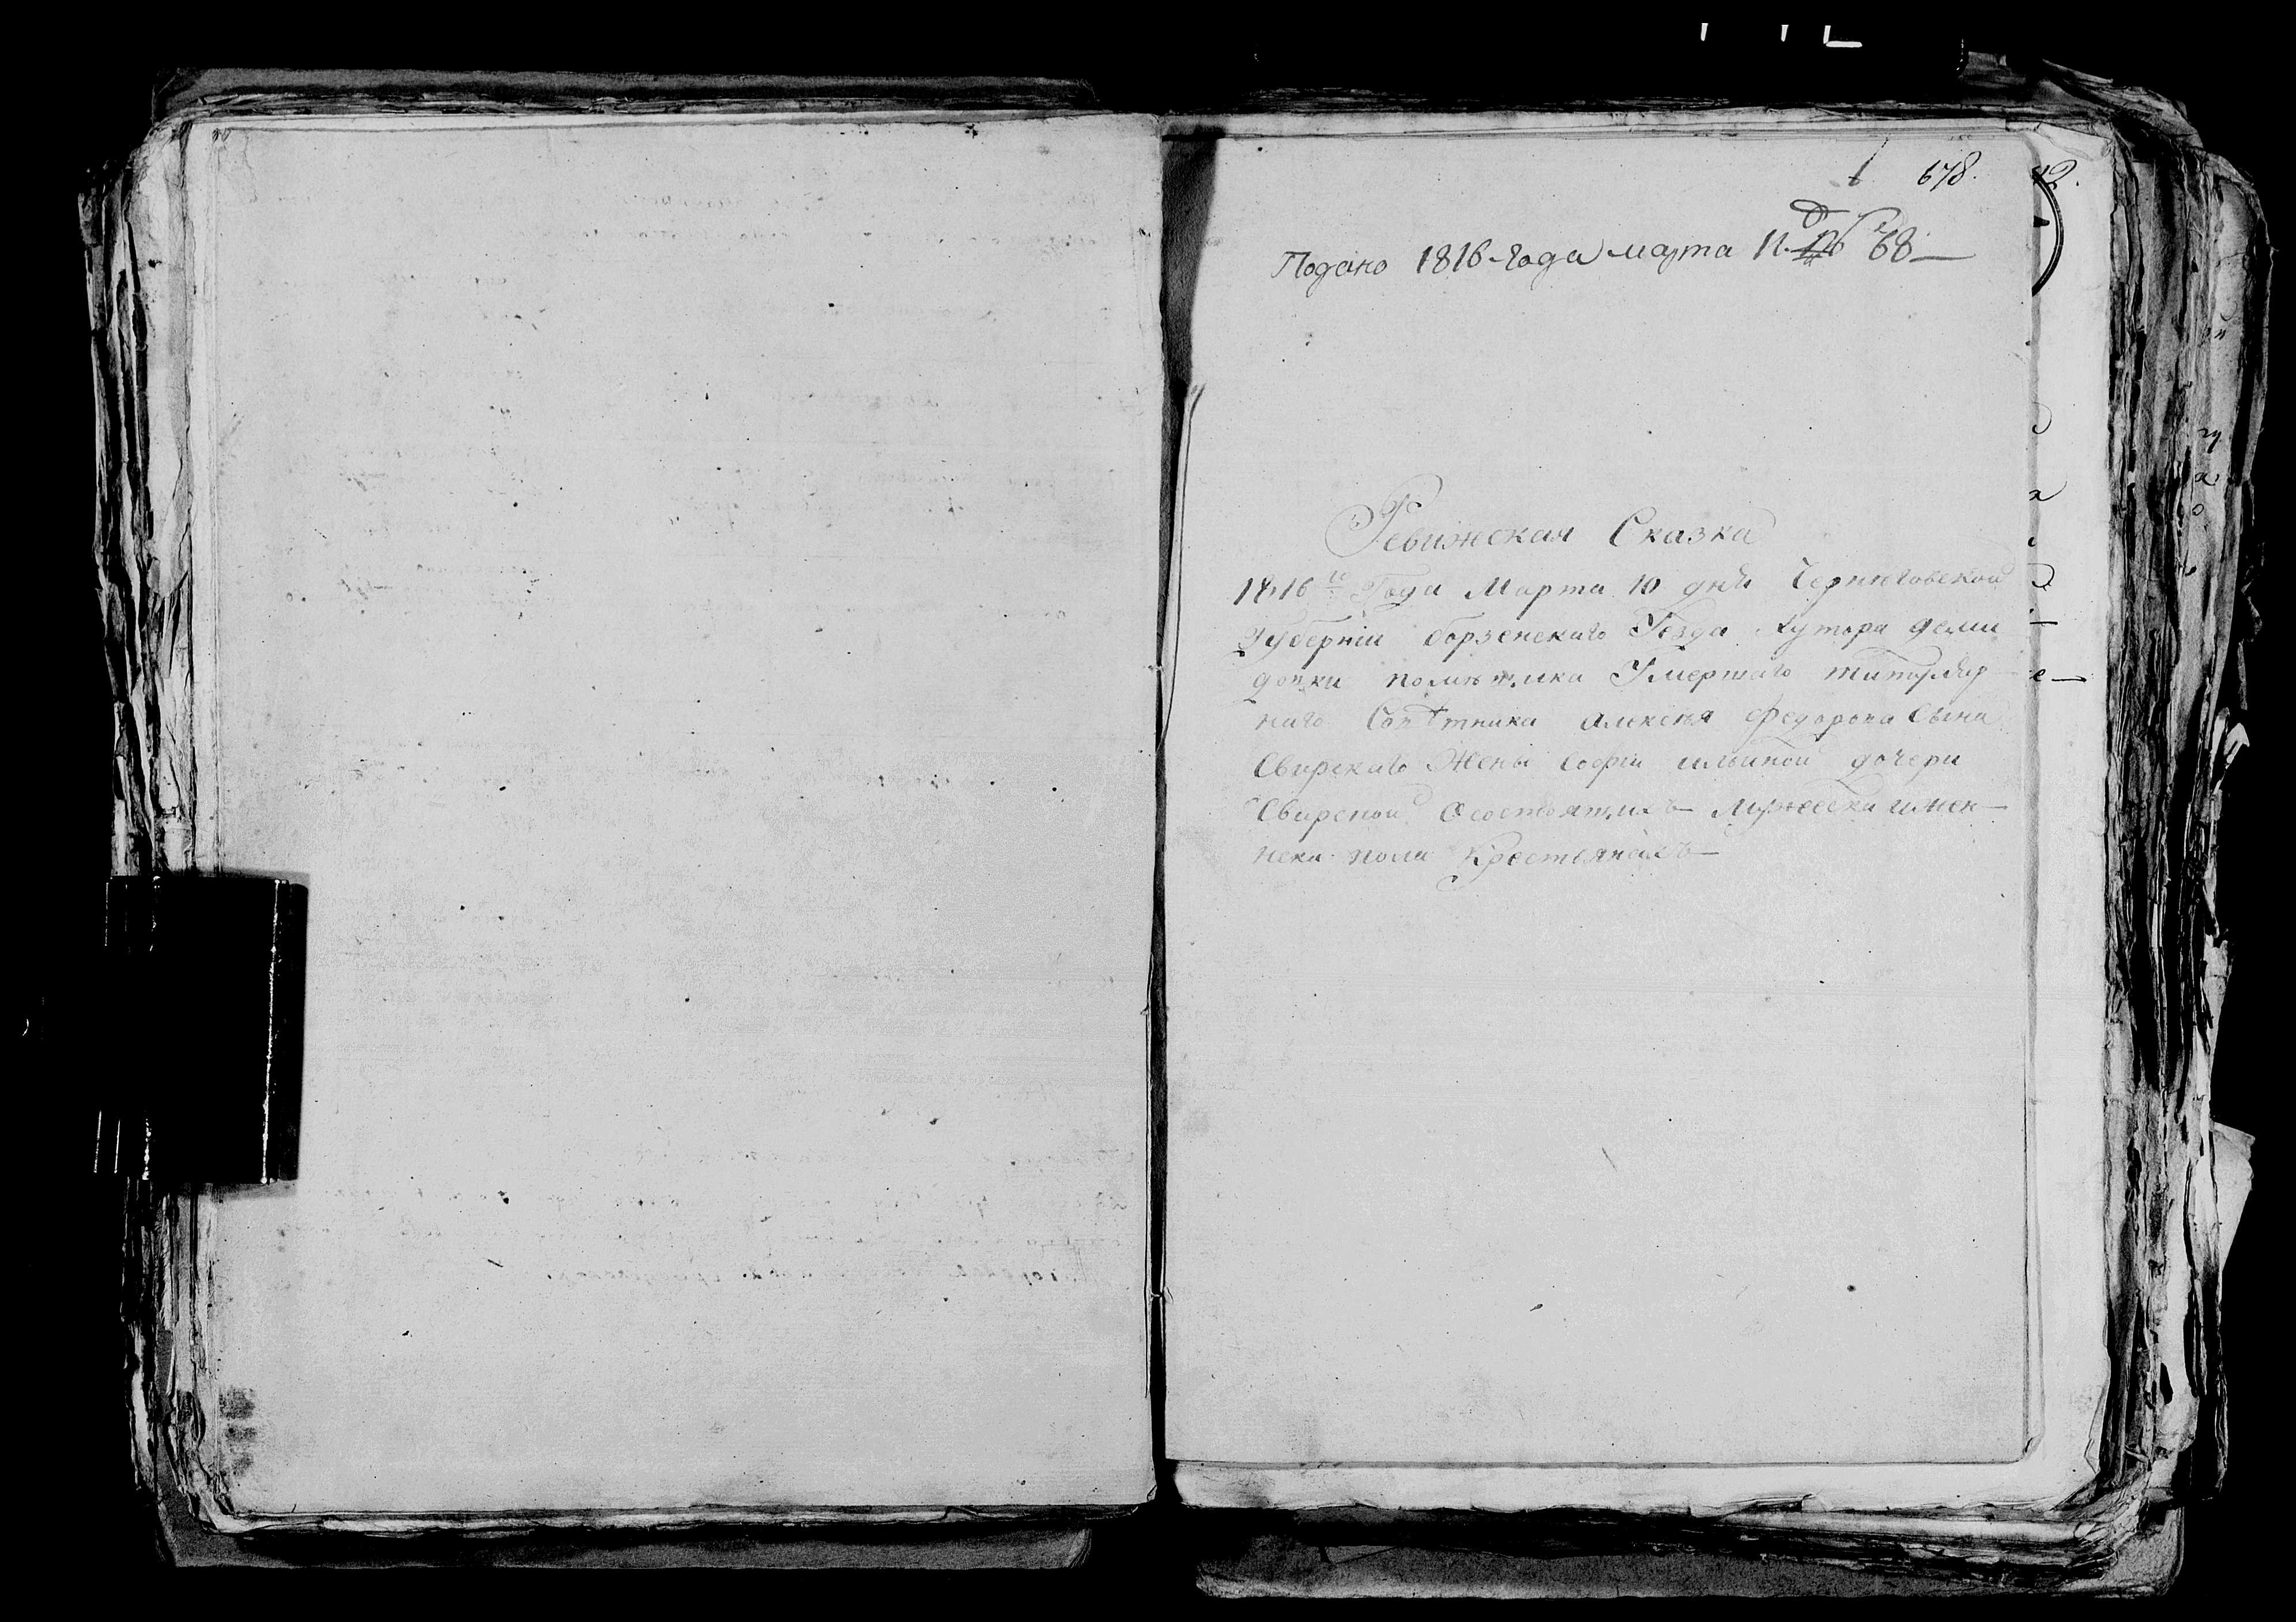 678.
Подано 1816 года марта 11. № 68
Ревижская Сказка
1816 го Года Марта 10 дня Черниговской
Губернии борзенскаго Уезда хутора деми
довки помѣщика Умершаго титуляр
наго Совѣтника алексѣя федорова Сына
Свирскаго Жены Софіи ильиной дочери
Свирской Осостоящихъ мужеска и жен
неска пола Крестьянахъ